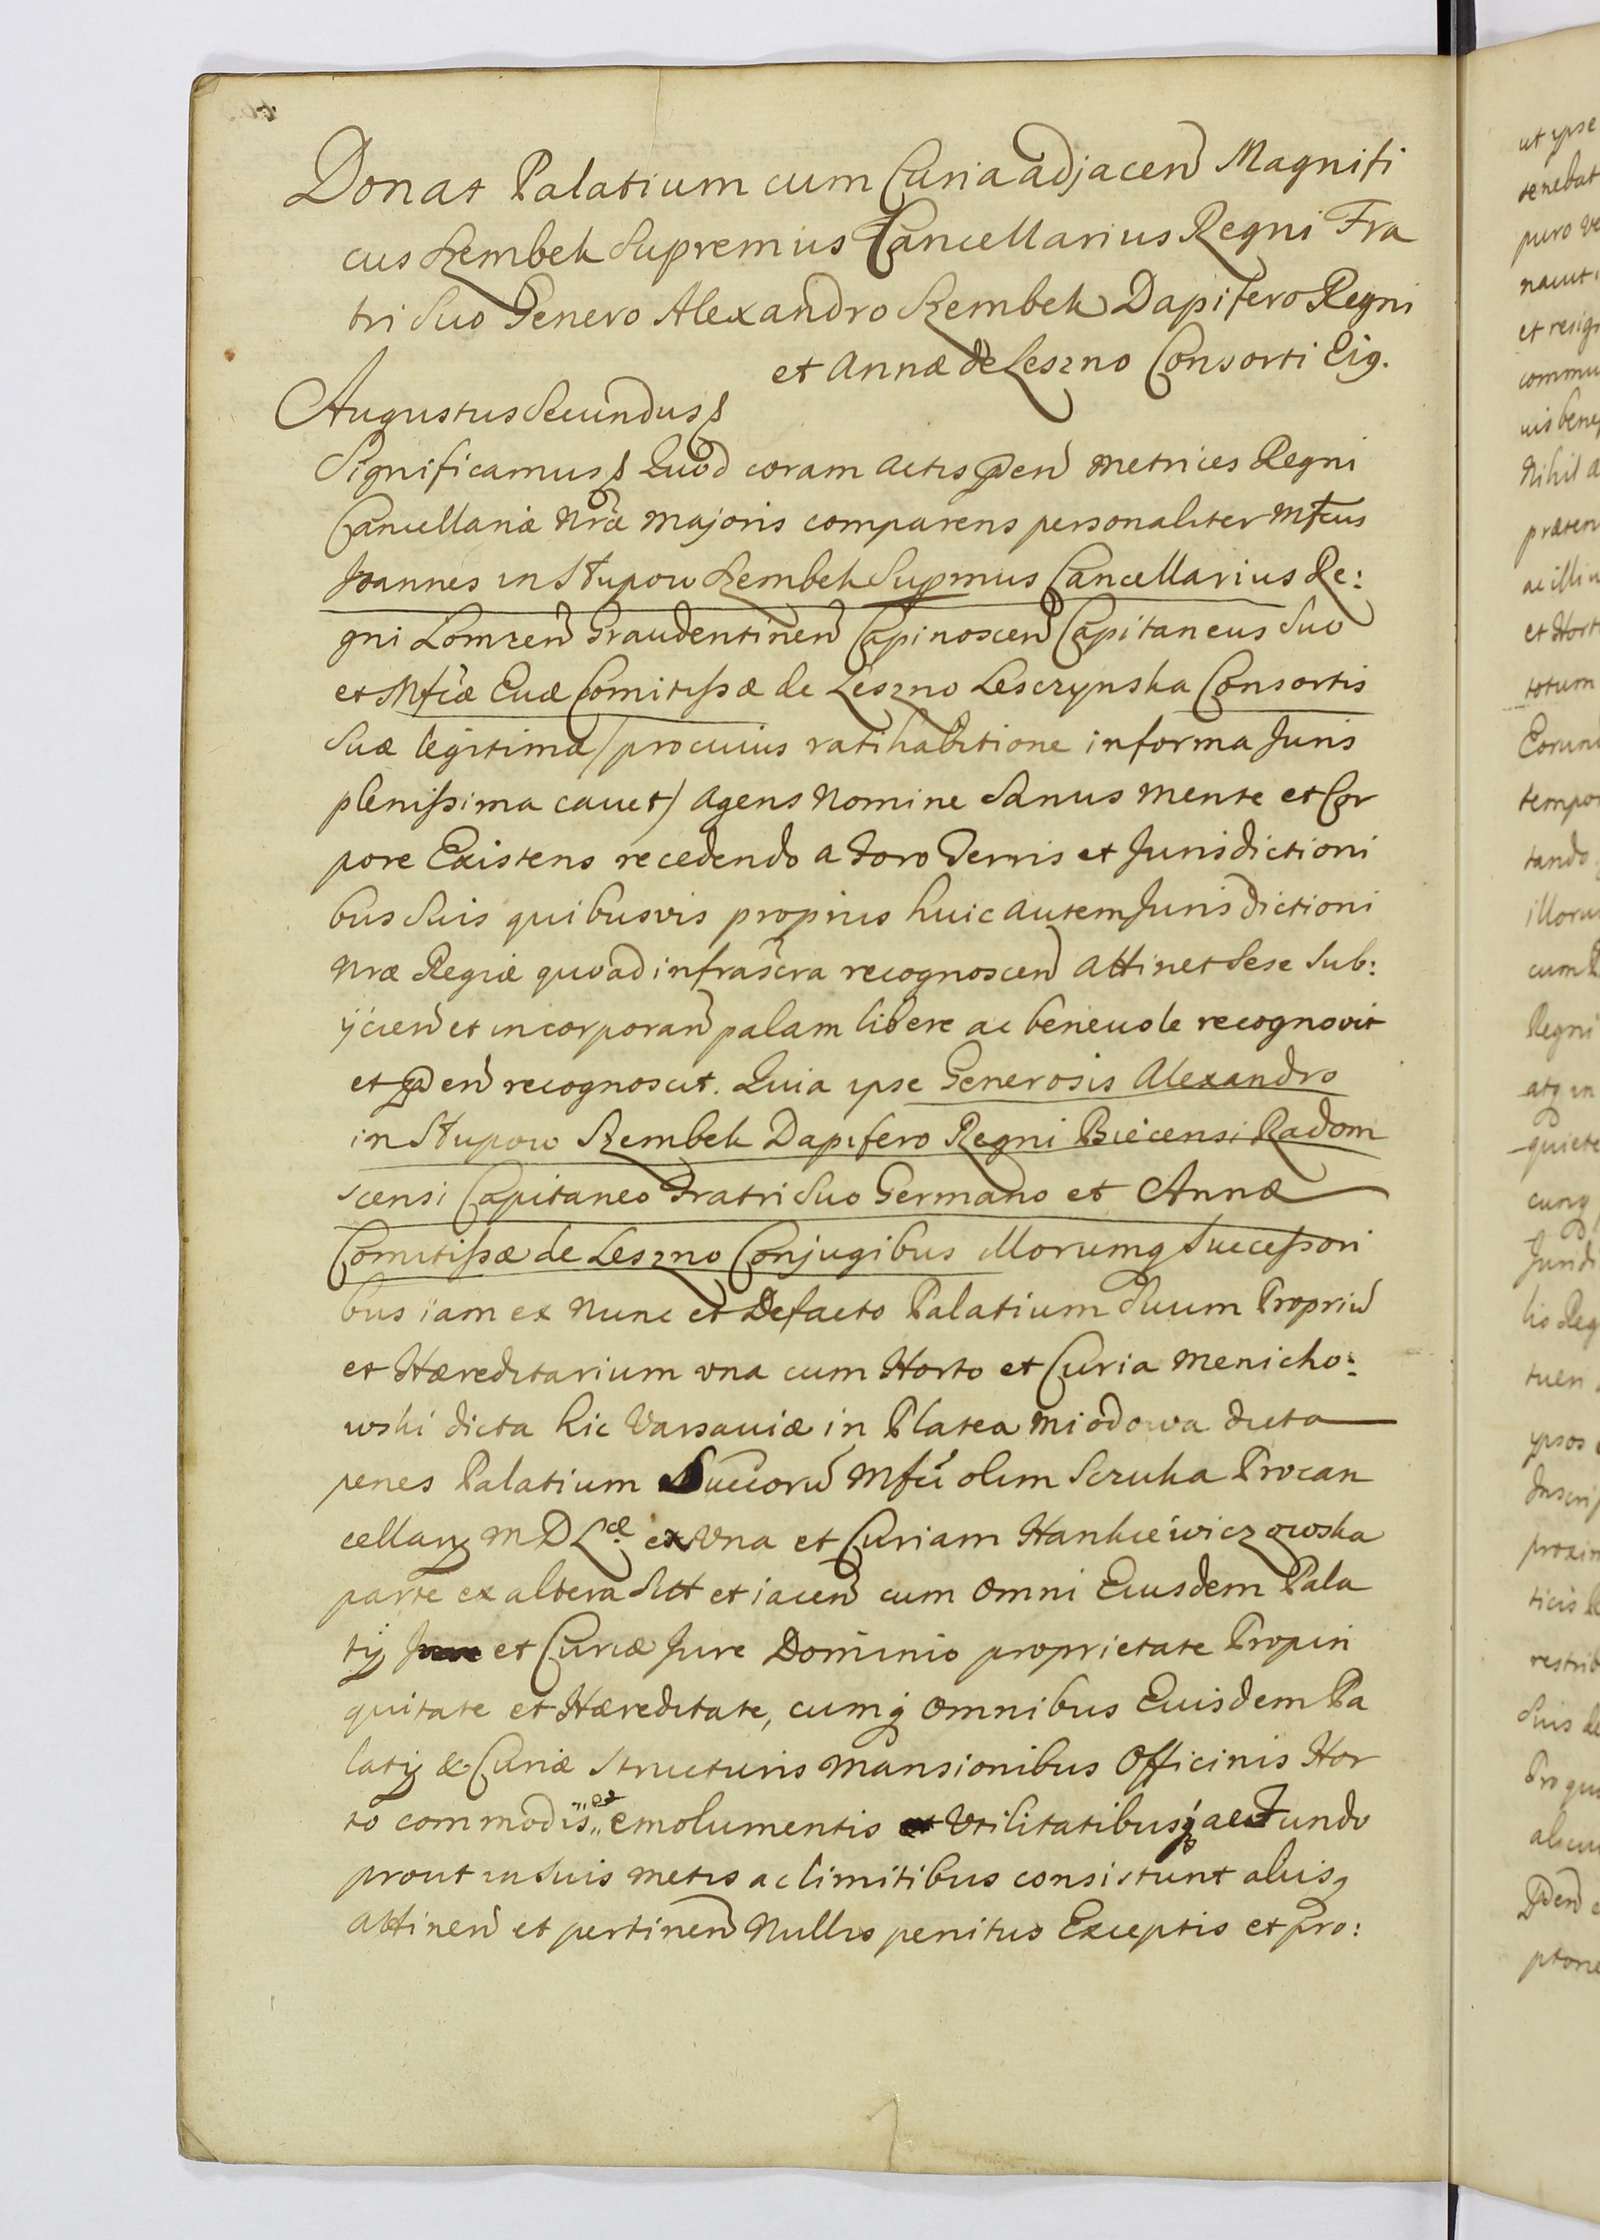 Donat Palatium cum Curia adjacen Magnifi
cus Szembek Supremus Cancellarius Regni Fra
tri Suo Genero Alexandro Szembek Dapifero Regni
et Annæ de Leszno Consorti Eig.
Augustus Secundus
Significamus Quod coram Actis pden Metrices Regni
Cancellariæ Nræ Majoris comparens personaliter Mfcus
Joannes in Słupow Szembek Supmus Cancellarius Re:
gni Lomzen Graudentinen Copinoscen Capitaneus Suo
et Mfcæ Euæ Comitissæ de Leszno Lesczynska Consortis
Suæ legitimæ /pro cuius ratihabitione in forma Juris
plenissima cauet/ Agens Nomine Sanus Mente et Cor
pore Existens recedendo a Foro Terris et Jurisdictioni
bus Suis quibusvis proprius huic autem Jurisdictioni
Nræ Regiæ quoad infrascra recognoscen Attinet Sese Sub:
ijcien et incorporan palam libere ac beneuole recognovit
et pden recognoscit. Quia ipse Generosis Alexandro
in Słupow Szembek Dapifero Regni Biecensi Radom
scensi Capitaneo Fratri Suo Germano et Annæ
Comitissæ de Leszno Conjugibus illorumq Successori
bus iam ex Nunc et Defacto Palatium Suum Propriu
et Hæreditarium vna cum Horto et Curia Menicho:
wski dicta hic Varsauiæ in Platea Miodowa dicta
penes Palatium Succoru Mfci olim Sczuka Procan
cellarij M D L æ ex Vna et Curiam Hankiewiczowska
parte ex altera Sitt et iacen cum Omni Eiusdem Pala
tij et Curiæ Jure Dominio proprietate Propin
quitate et Hæreditate, cumq Omnibus Euisdem Pa
latij & Curiæ Structuris Mansionibus Officinis Hor
to commodis et emolumentis Vtilitatibusq ac Fundo
prout in Suis Metis ac limitibus consistunt aliisq
Attinen et pertinen Nullis penitus Exceptis et pro: